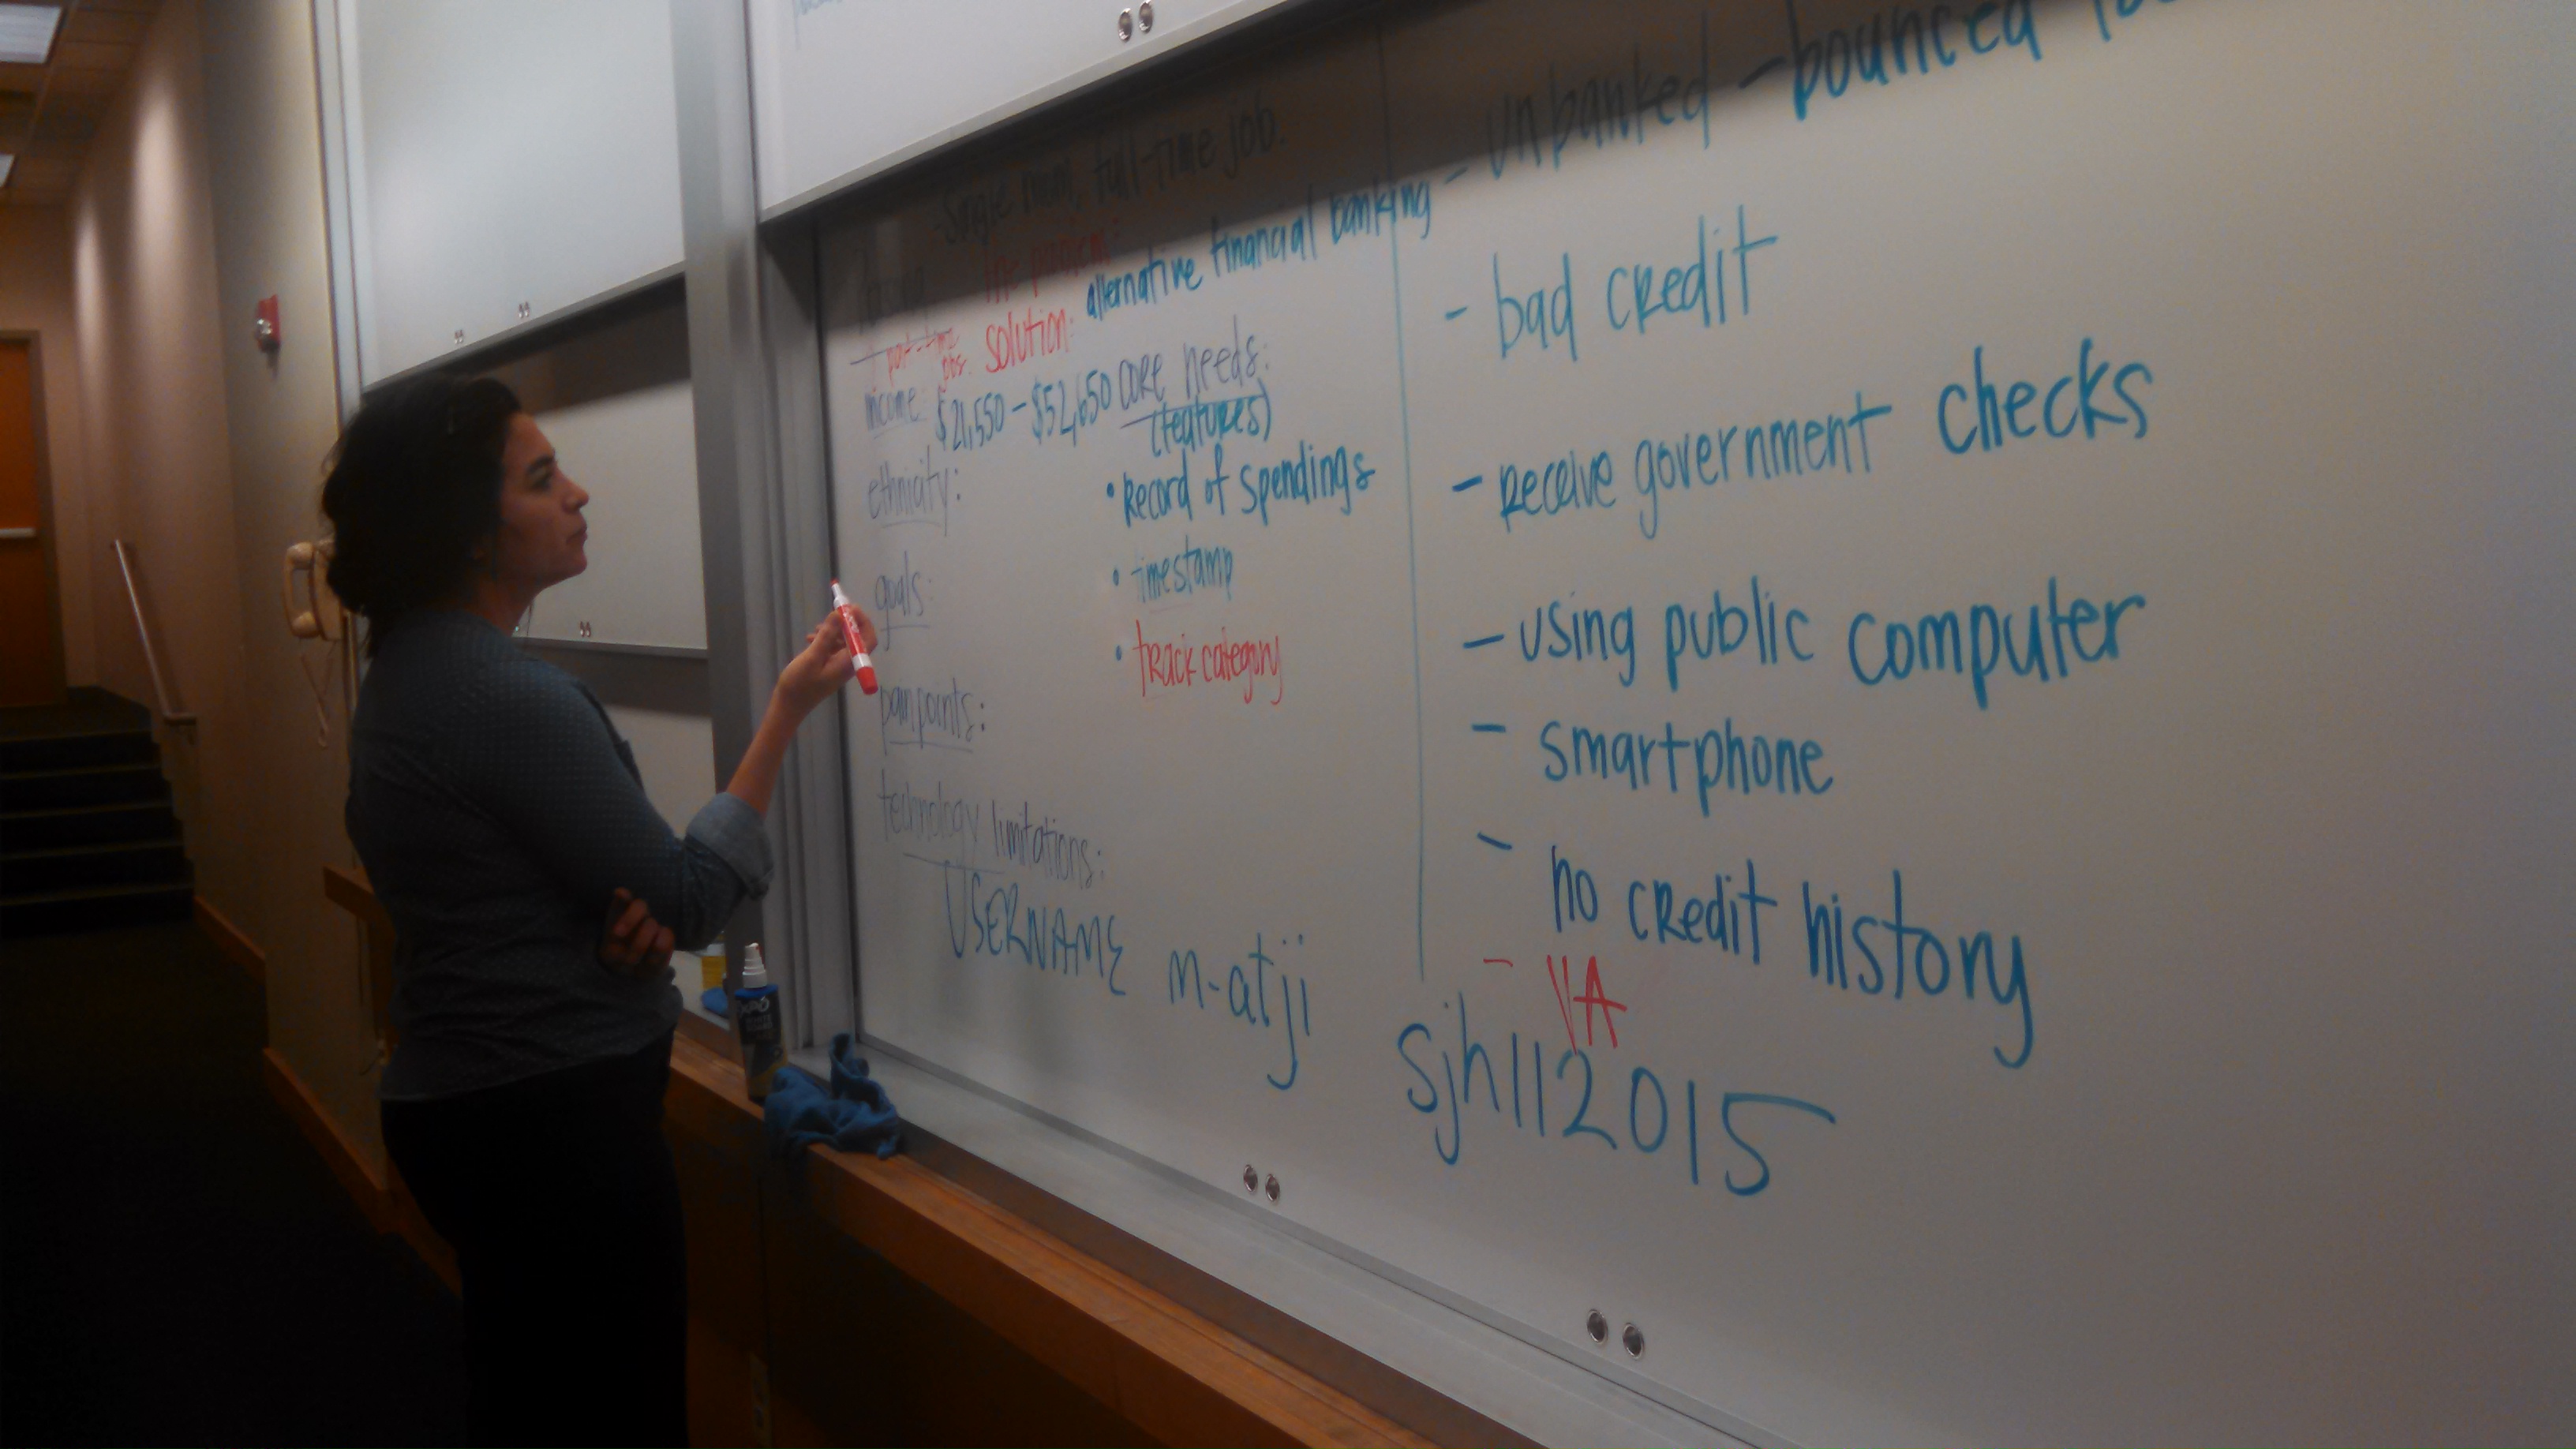 - Single mom, full-time job.
solution: alternative financial banking
income: $21,550 - $52,650
ethnicity:
goals:
pain points:
technology limitations:
core needs:
(features)
• Record of spendings
• timestamp
• track category
USERNAME m-atji
- unbanked - bounced
- bad credit
- receive government checks
- using public computer
- smartphone
- no credit history
- VA
sjh112015
EXPO